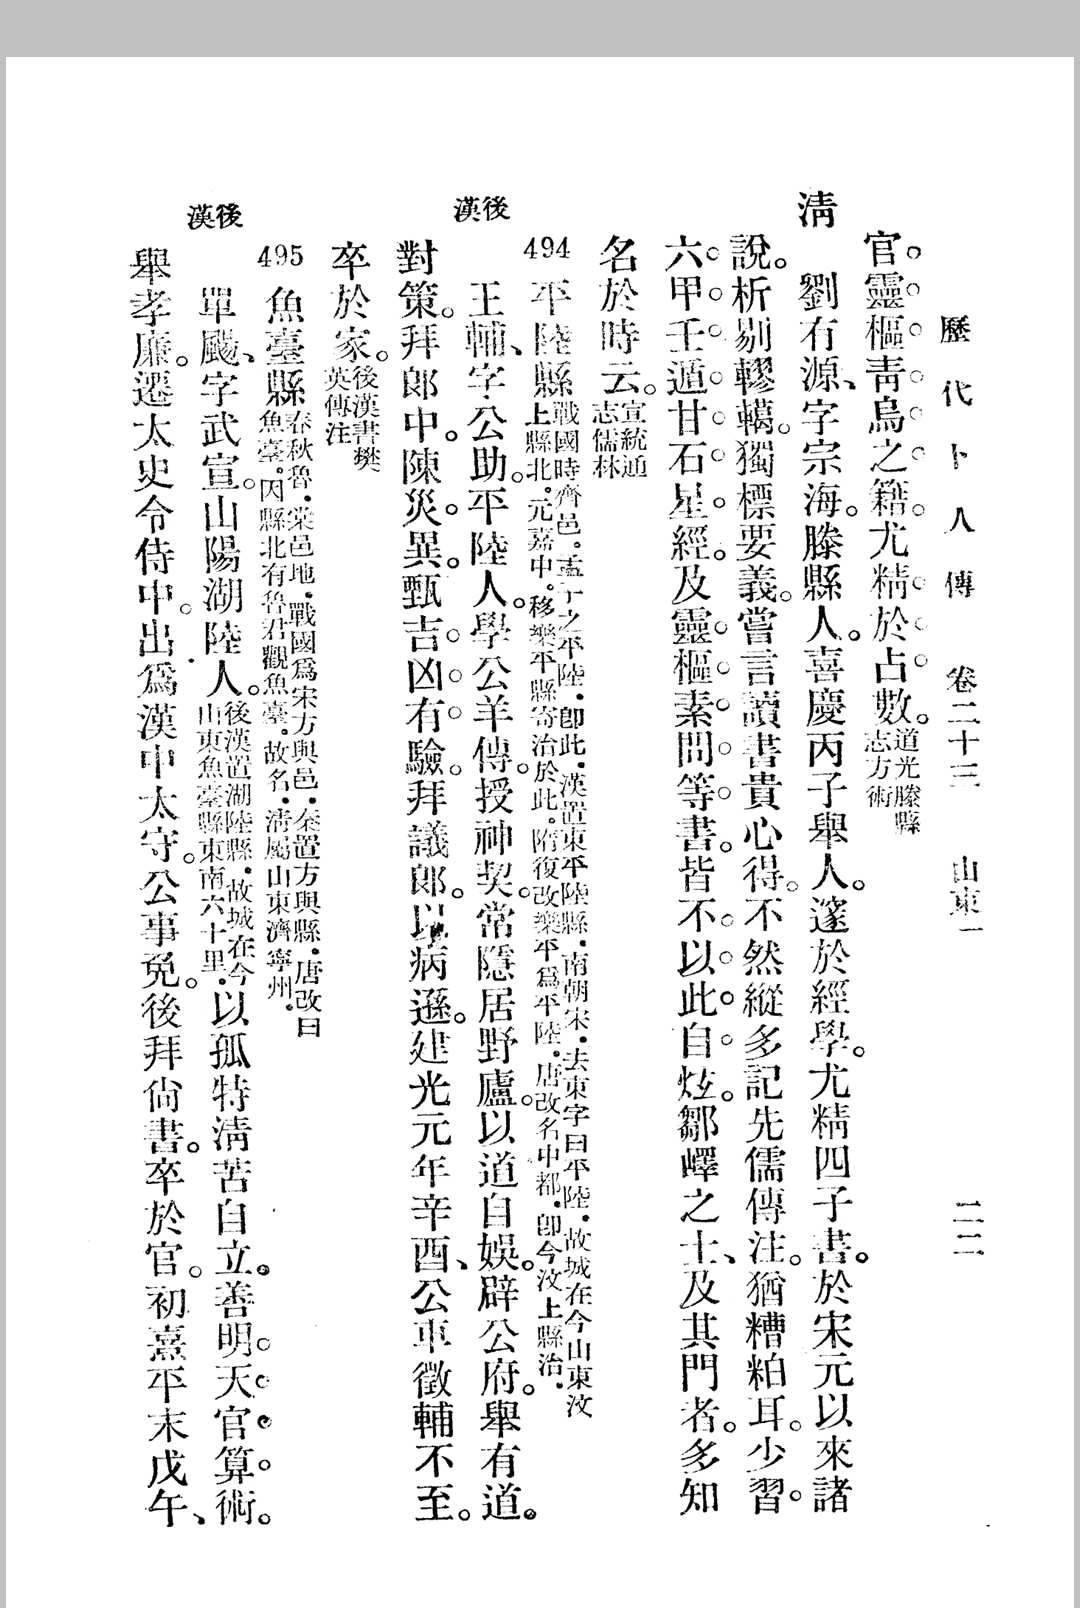 歷代卜人傳 卷二十三 山東一 二二
官。靈樞靑烏之籍。尤精於占數。道光滕縣志方術
清
劉有源、字宗海。滕縣人。嘉慶丙子舉人。邃於經學。尤精四子書。於宋元以來諸
說。析剔轇轕。獨標要義。嘗言讀書貴心得。不然縱多記先儒傳注。猶糟粕耳。少習
六甲壬遁甘石星經。及靈樞素問等書。皆不以此自炫。鄒嶧之士、及其門者。多知
名於時云。宣統通志儒林
494 平陸縣 戰國時齊邑。孟子之平陸。卽此。漢置東平陸縣。南朝宋。去東字曰平陸。故城在今山東汶
上縣北。元嘉中。移樂平縣寄治於此。隋復改樂平爲平陸。唐改名中都。卽今汶上縣治。
後漢
王輔、字公助。平陸人。學公羊傳。授神契。常隱居野廬。以道自娛。辟公府。舉有道。
對策。拜郎中。陳災異。甄吉凶。有驗。拜議郎。以病遜。建光元年辛酉、公車徵輔不至。
卒於家。後漢書樊英傳注
495 魚臺縣 春秋魯。棠邑地。戰國爲宋方與邑。秦置方與縣。唐改曰
魚臺。因縣北有魯君觀魚臺。故名。淸屬山東濟寧州。
後漢
單颺、字武宣。山陽湖陸人。後漢置湖陸縣。故城在今山東魚臺縣東南六十里。以孤特淸苦自立。善明天官算術。
舉孝廉。遷太史令侍中。出爲漢中太守。公事免。後拜尙書。卒於官。初熹平末戊午、